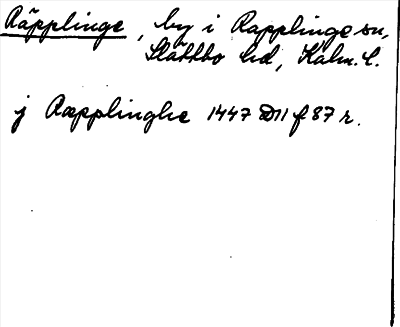 Räpplinge, by i Räpplinge sn,
Slättbo hd, Kalm. l.
j Ræpplinghe 1447 D11 f 87 r.